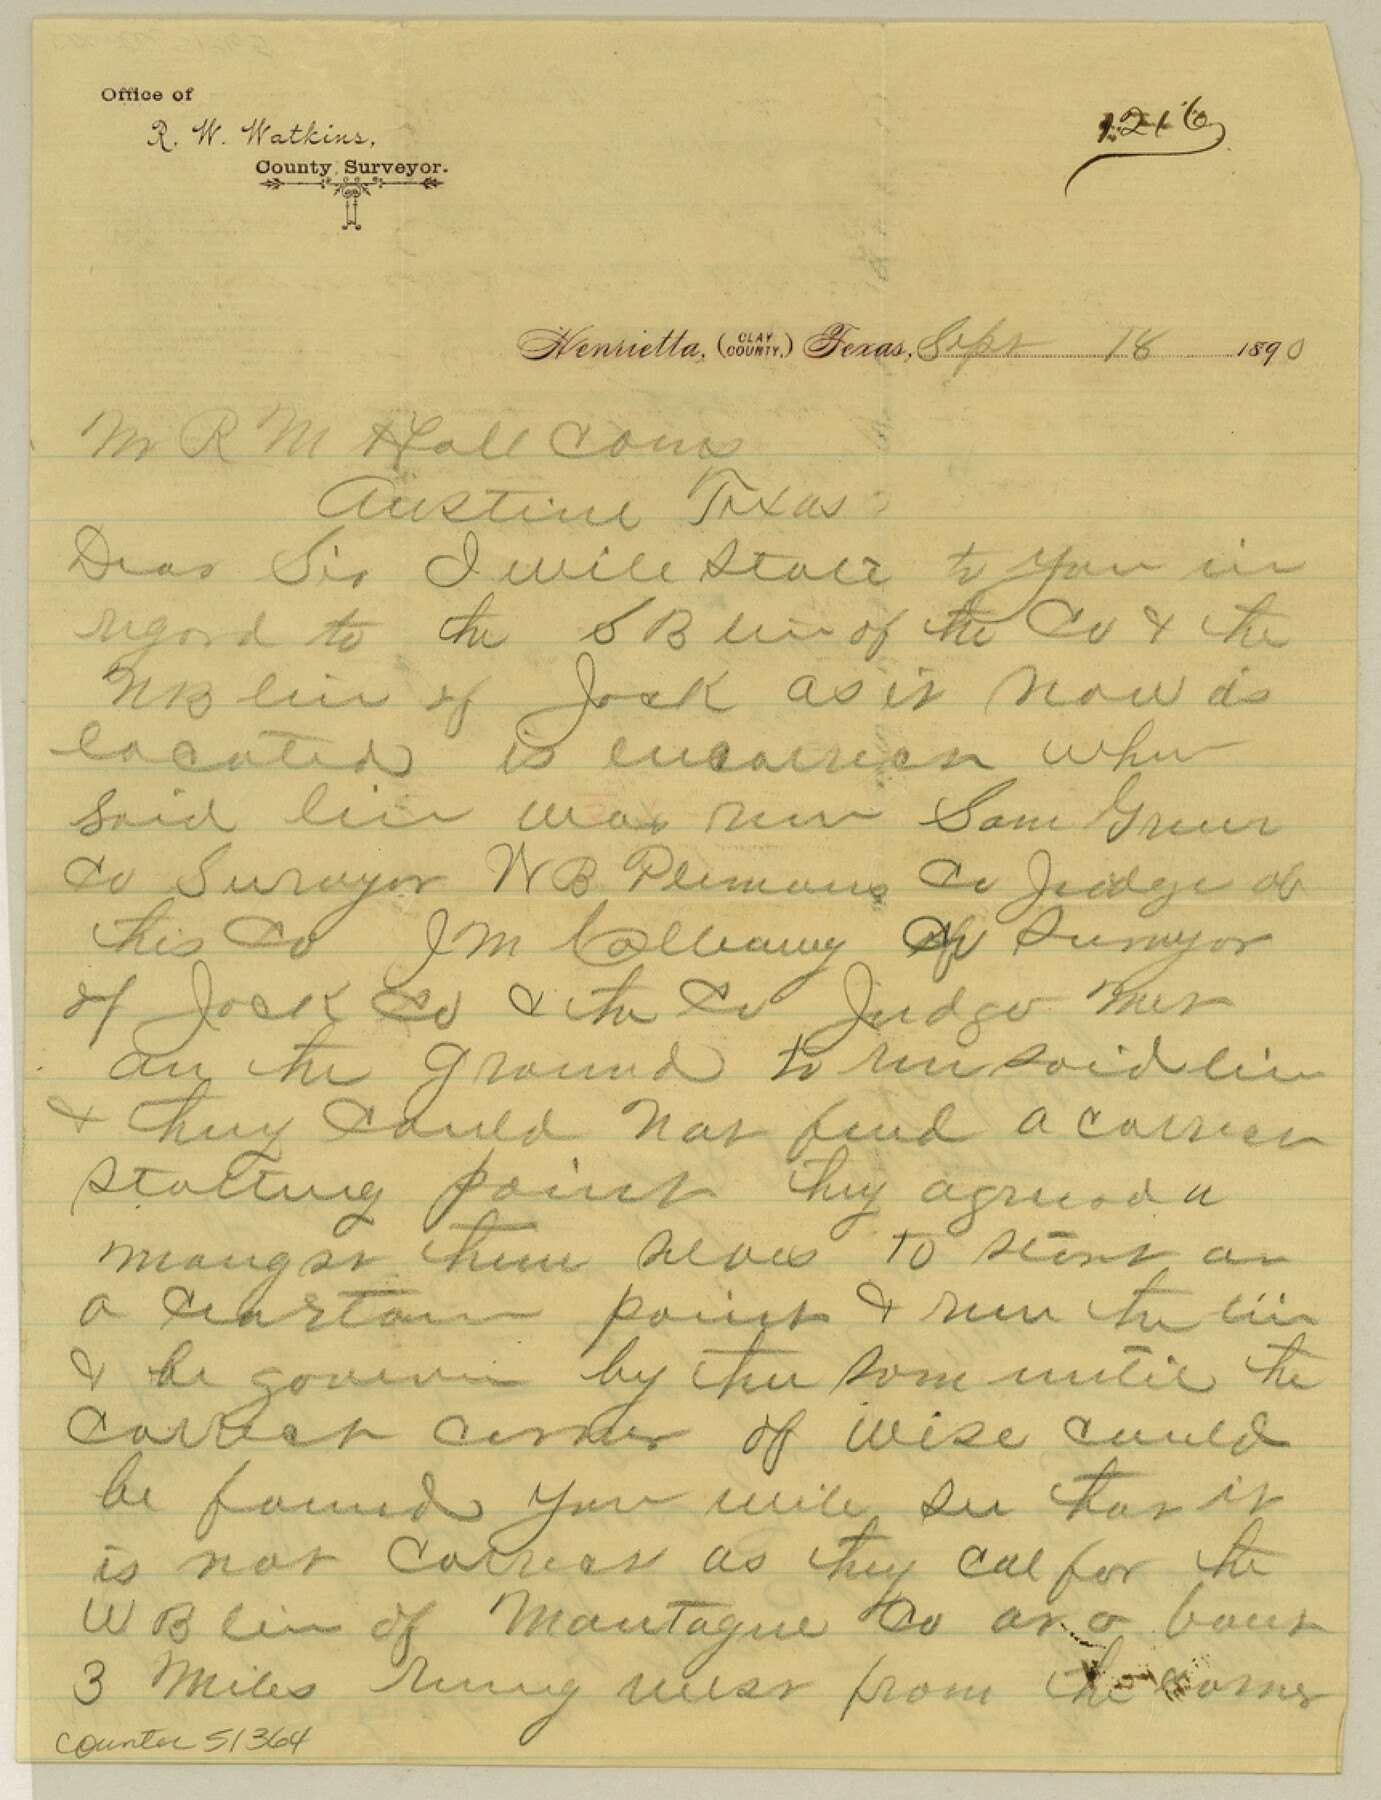 Office of
R. W. Watkins,
County Surveyor.
1216
Henrietta, (CLAY COUNTY,) Texas, Sept 18 1890
Mr R M Hall Coms
Austine Texas
Dear Sir I will state to you in
regard to the S B line of the Co & the
N B line of Jack as it now is
located is incorrect when
said line was run Sam Green
Co Surveyor W B Plemons Co Judge of
this Co J M Surveyor
of Jack Co & the Co Judge met
on the ground to run said line
& they could not find a correct
stating point they agreed a
mongst them selves to start at
a ceartain point & run the line
& be govern by the som until the
correct corner of Wise could
be found you will see that it
is not correct as they cal for the
W B line of Montague Co at a bout
3 Miles runing west from the corner
counter 51364